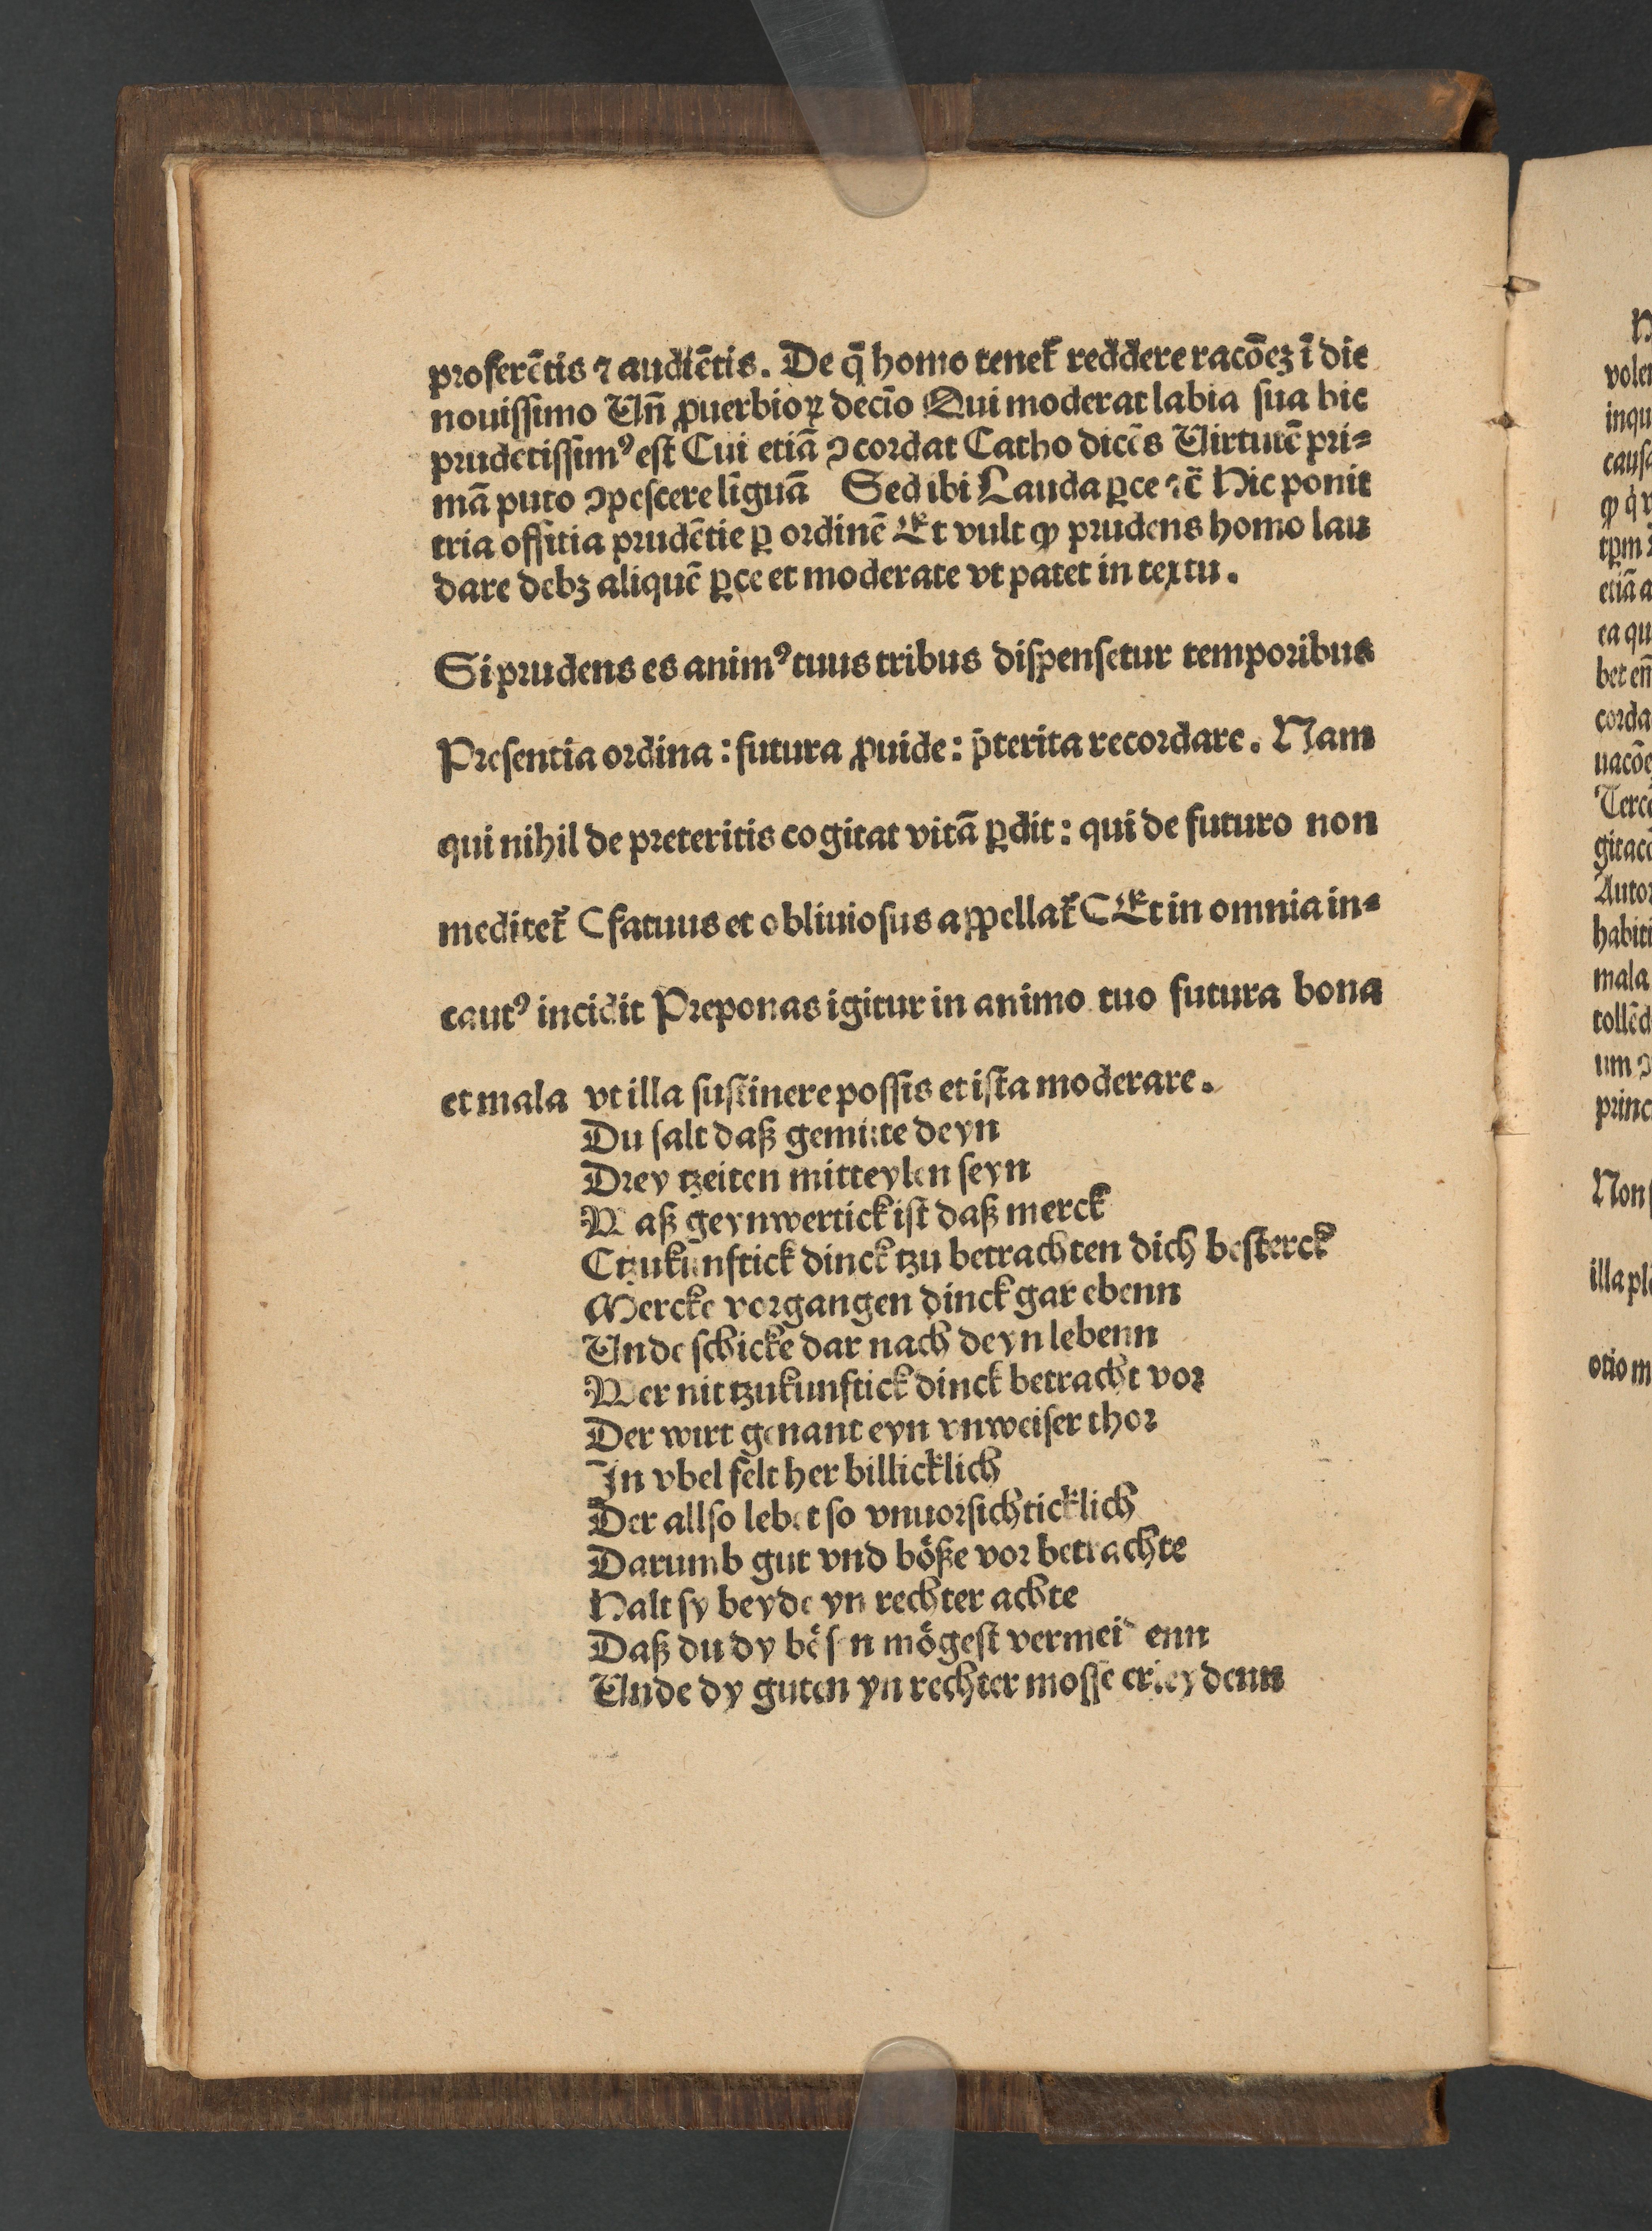 proferētis ⁊ audiētis. De q̄ homo tenet̄ reddere racōeꝫ ī die
nouissimo Un̄ ꝓuerbioꝝ decīo Qui moderat labia sua hic
prudētissimꝰ est Cui etiā ꝯcordat Catho dicēs Uirtutē pri⸗
mā puto ꝯpescere līguā Sed ibi Lauda ꝑce ⁊c̄ Hic ponit
tria offitia prudētie ꝑ ordinē Et vult ꝙ prudens homo lau
dare debꝫ aliquē ꝑce et moderate vt patet in textu.
Si prudens es animꝰ tuus tribus dispensetur temporibus
Presentia ordina: futura ꝓuide: p̄terita recordare. Nam
qui nihil de preteritis cogitat vitā ꝑdit: qui de futuro non
meditet̄ ⊂fatuus et obliuiosus appellat̄⊂ Et in omnia in⸗
cautꝰ incidit Preponas igitur in animo tuo futura bona
et mala vt illa sustinere possis et ista moderare.
Du salt daß gemute deyn
Drey tzeiten mitteylen seyn
Waß geynwertick ist daß merck
Ctzukunftick dinck tzu betrachten dich besterck
Mercke vorgangen dinck gar ebenn
Unde schicke dar nach deyn lebenn
Wer nit tzukunftick dinck betracht vor
Der wirt genant eyn vnweiser thor
In vbel felt her billicklich
Der allso lebet so vnuorsichticklich
Darumb gut vnd böße vor betrachte
Halt sy beyde yn rechter achte
Daß du dy bösen mögest vermeidenn
Unde dy guten yn rechter mosse erleydenn